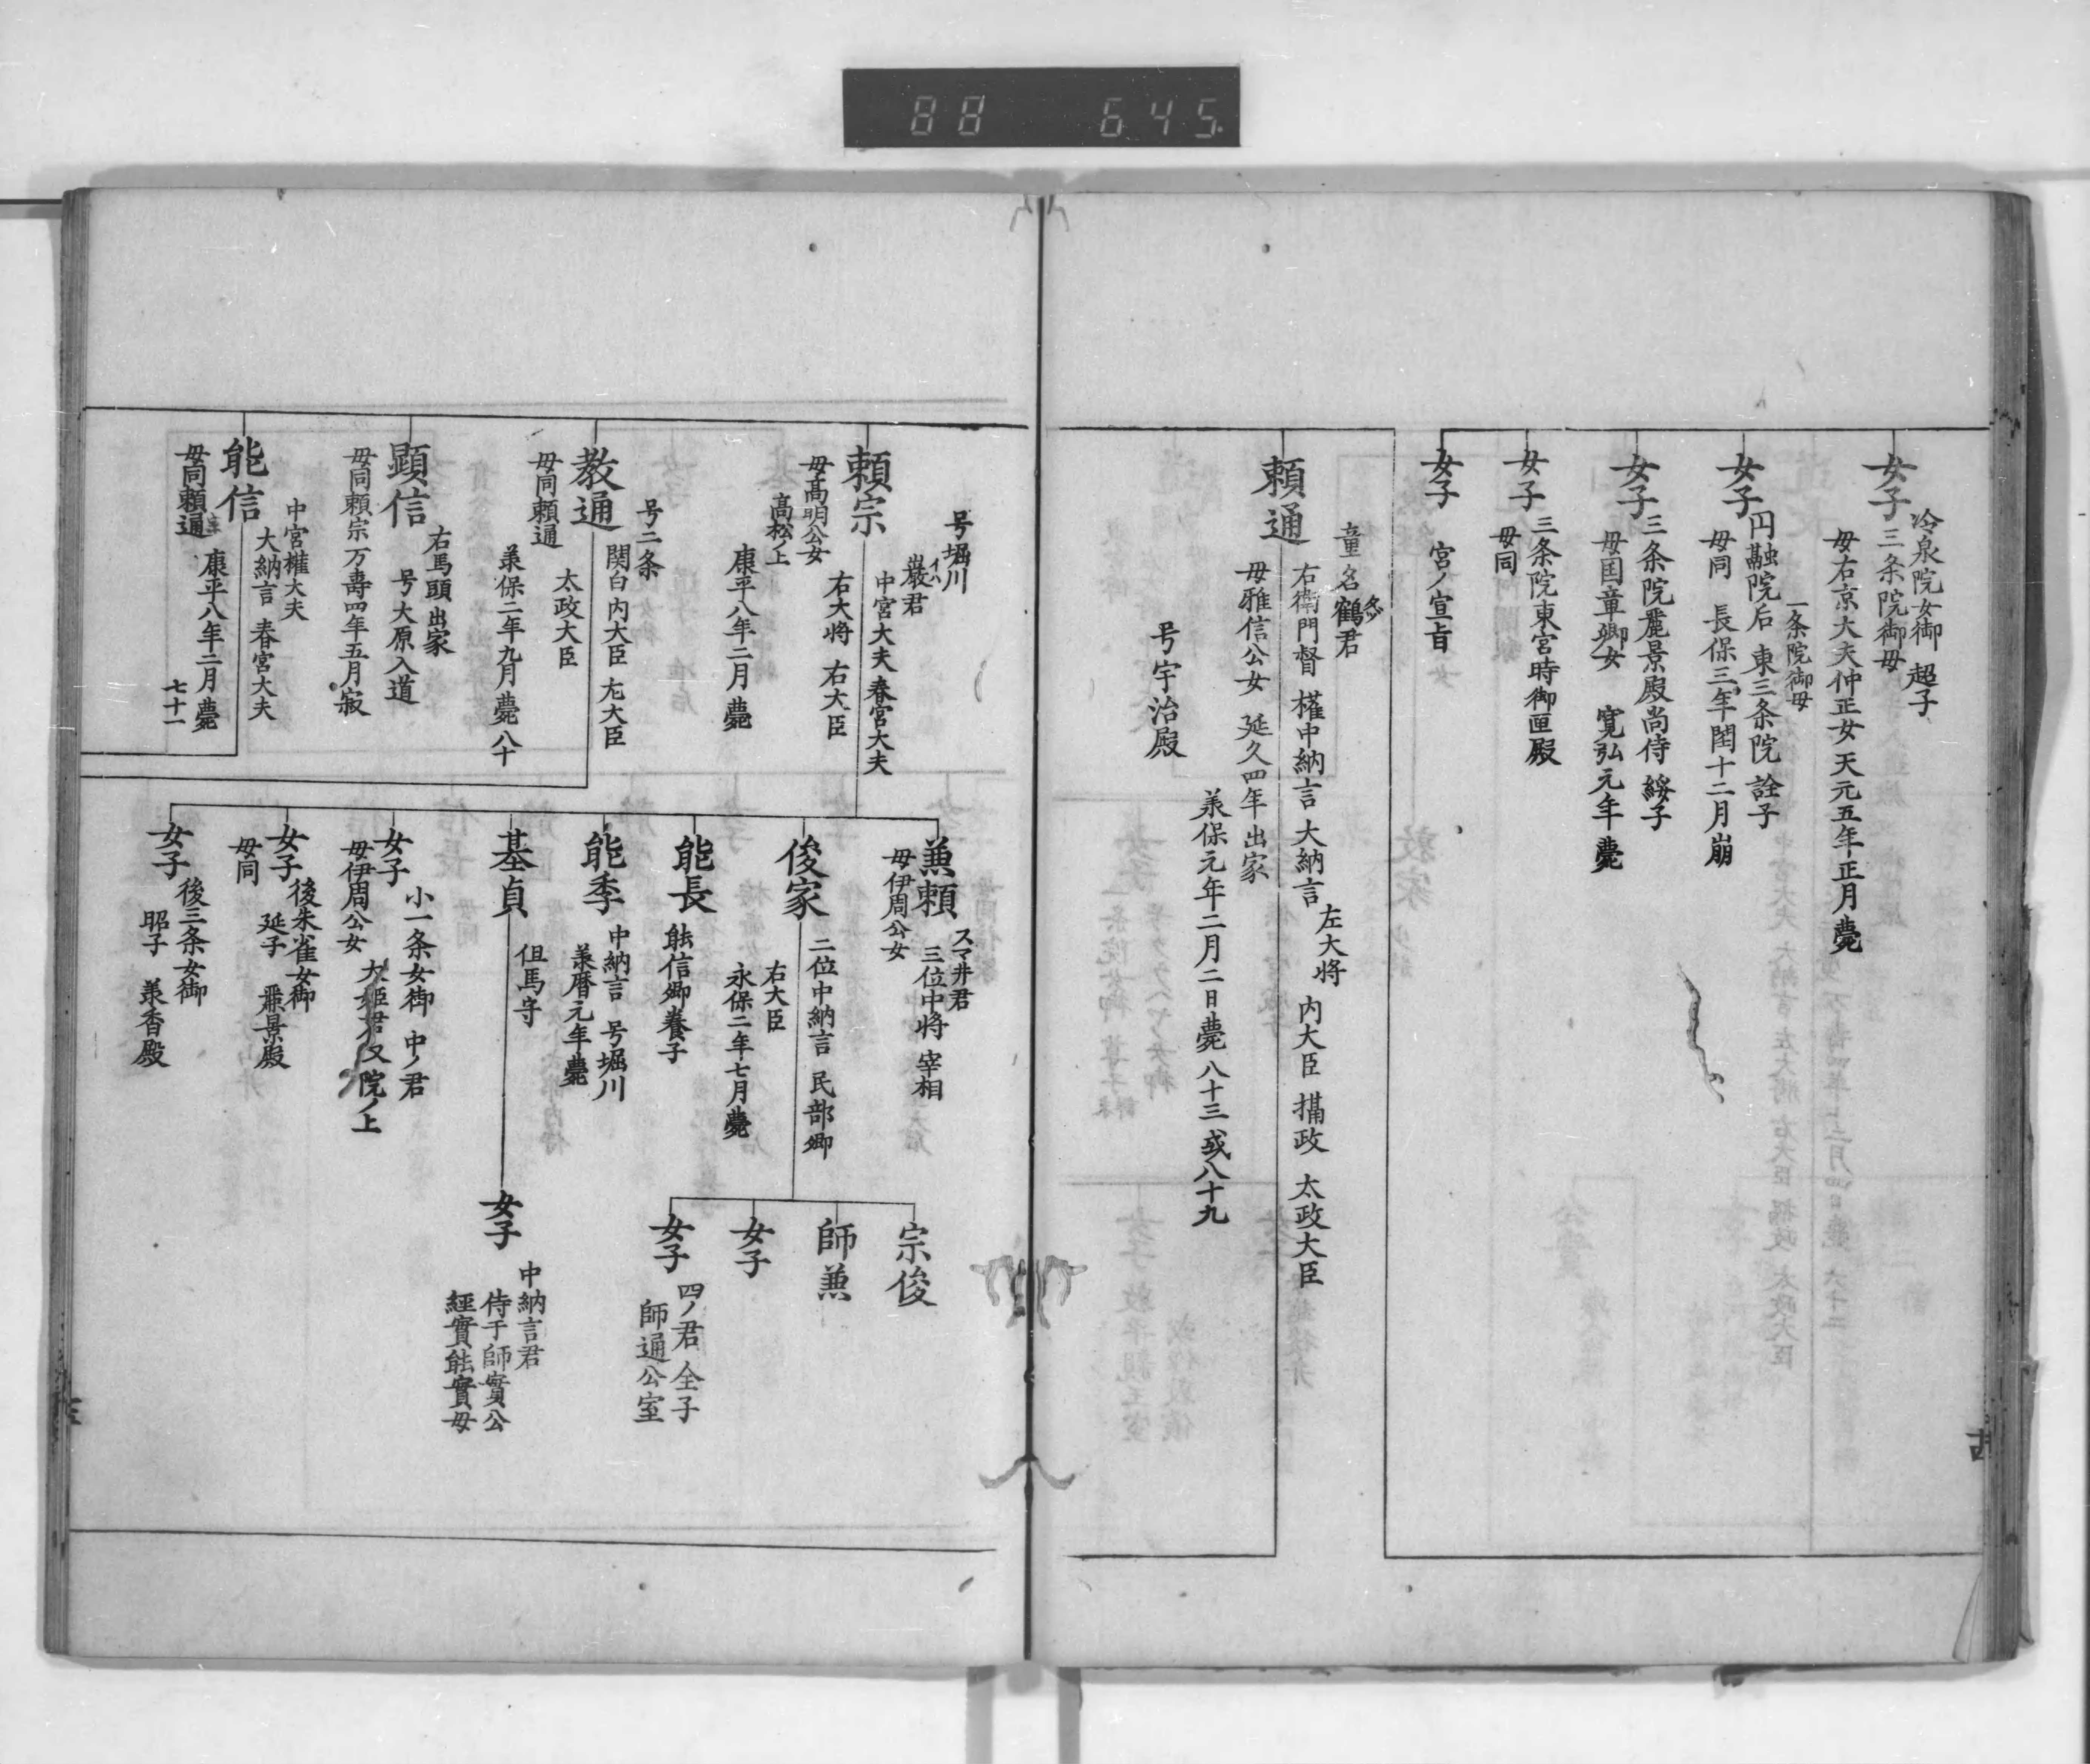 88 645
女子
冷泉院女御 超子
三条院御母
母右京大夫仲正女 天元五年正月薨
女子
一条院御母
円融院后 東三条院 詮子
母同 長保三年閏十二月崩
女子
三条院麗景殿尚侍 綏子
母国章卿女 寛弘元年薨
女子
三条院東宮時御匣殿
母同
女子
宮ノ宣旨
頼通
童名鶴君
右衛門督 権中納言 大納言 左大将 内大臣 摂政 太政大臣
母雅信公女 延久四年出家
承保元年二月二日薨 八十三或八十九
号宇治殿
頼宗
号堀川
巌君
イハ
中宮大夫 春宮大夫
右大将 右大臣
母高明公女
高松ノ上
康平八年二月薨
教通
号二条
関白 内大臣 左大臣
太政大臣
母同頼通
承保二年九月薨 八十
顕信
右馬頭 出家
号大原入道
母同頼宗 万寿四年五月寂
能信
中宮権大夫
大納言 春宮大夫
母同頼通
康平八年二月薨
七十一
兼頼
スマ井君
三位中将 宰相
母伊周公女
俊家
二位中納言 民部卿
右大臣
永保二年七月薨
能長
能信卿養子
能季
中納言 号堀川
承暦元年薨
基貞
但馬守
女子
小一条女御 中ノ君
母伊周公女
大姫君 又院ノ上
女子
後朱雀女御
延子 麗景殿
母同
女子
後三条女御
昭子 承香殿
宗俊
師兼
女子
女子
四ノ君 全子
師通公室
女子
中納言君
侍于師實公
經實能實母